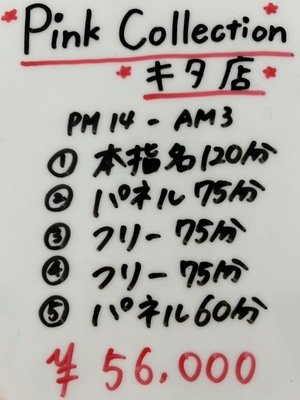 Pink Collection
キタ店
PM 14 - AM 3
① 本指名 120分
② パネル 75分
③ フリー 75分
④ フリー 75分
⑤ パネル 60分
¥ 56.000